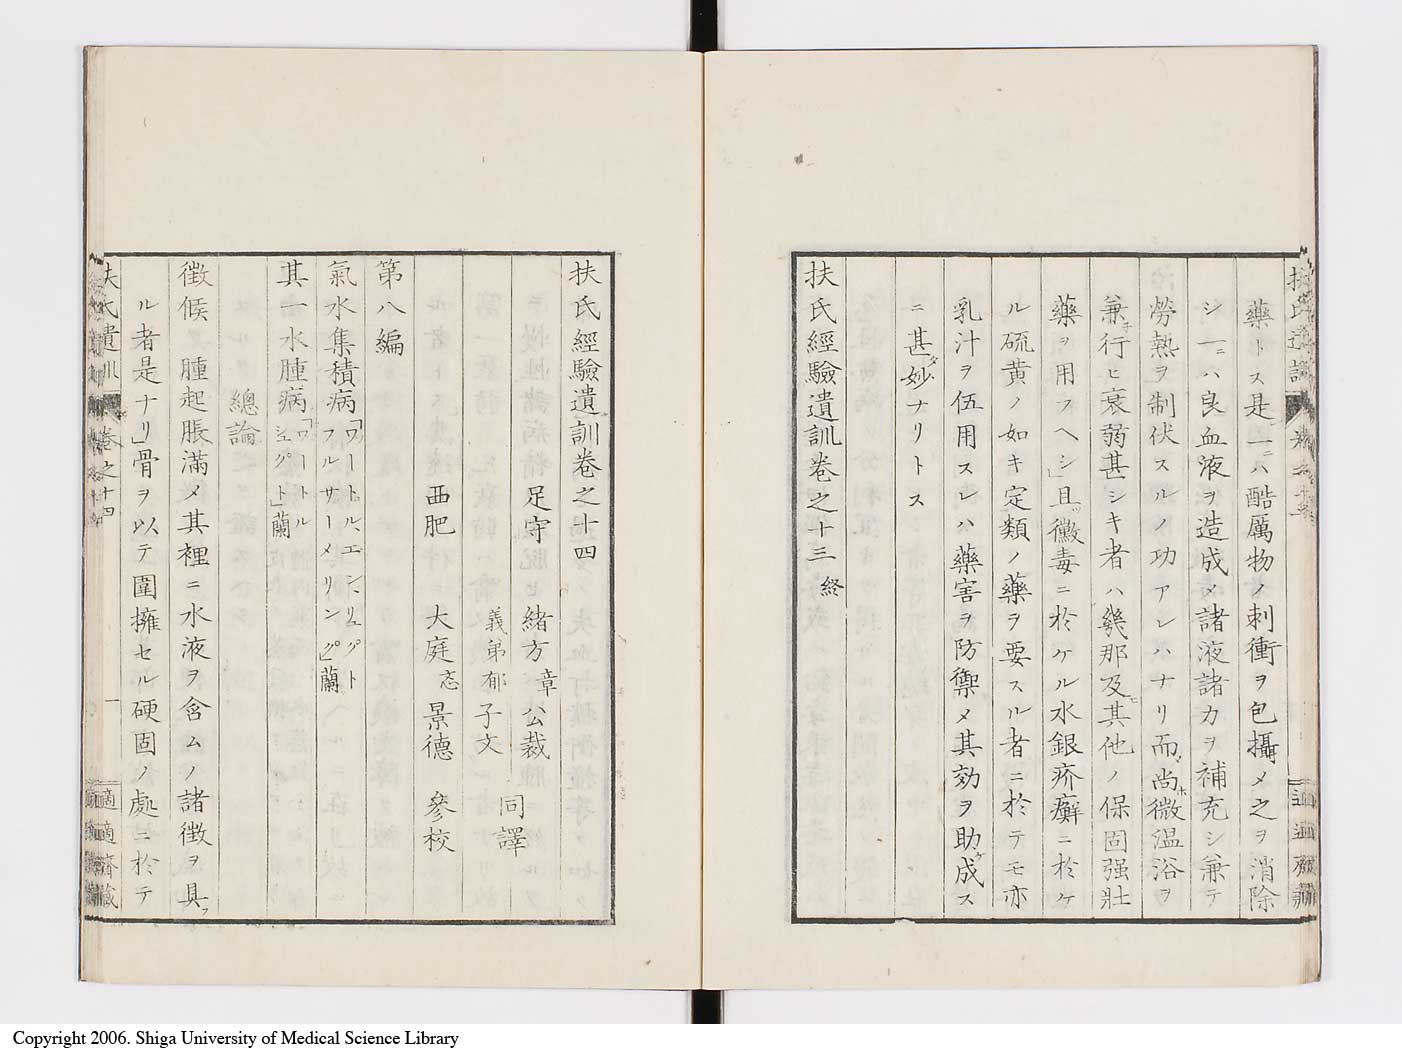 藥トス是一ハ酷厲物ノ刺衝ヲ包攝メ之ヲ消除
シ一ニハ良血液ヲ造成メ諸液諸力ヲ補充シ兼テ
勞熱ヲ制伏スルノ功アレハナリ而尚微温浴ヲ
兼行ヒ衰弱甚シキ者ハ幾那及其他ノ保固强壯
藥ヲ用フヘシ」且黴毒ニ於ケル水銀疥癬ニ於ケ
ル硫黄ノ如キ定類ノ藥ヲ要スル者ニ於テモ亦
乳汁ヲ伍用スレハ藥害ヲ防禦メ其効ヲ助成ス
ニ甚妙ナリトス
扶氏經驗遺訓卷之十三 終
扶氏經驗遺訓卷之十四
足守 緒方章公裁 同譯
義弟郁子文
西肥 大庭忞景德 參校
第八編
氣水集積病「ワートル、エン、リュグトフルサーメリング」蘭
其一水腫病「ワートルシュグト」蘭
總論
徴候 腫起脹滿メ其裡ニ水液ヲ含ムノ諸徴ヲ具フ
ル者是ナリ」骨ヲ以テ圍擁セル硬固ノ處ニ於テ
扶氏遺訓 卷之十四 一 適適齋藏
Copyright 2006. Shiga University of Medical Science Library